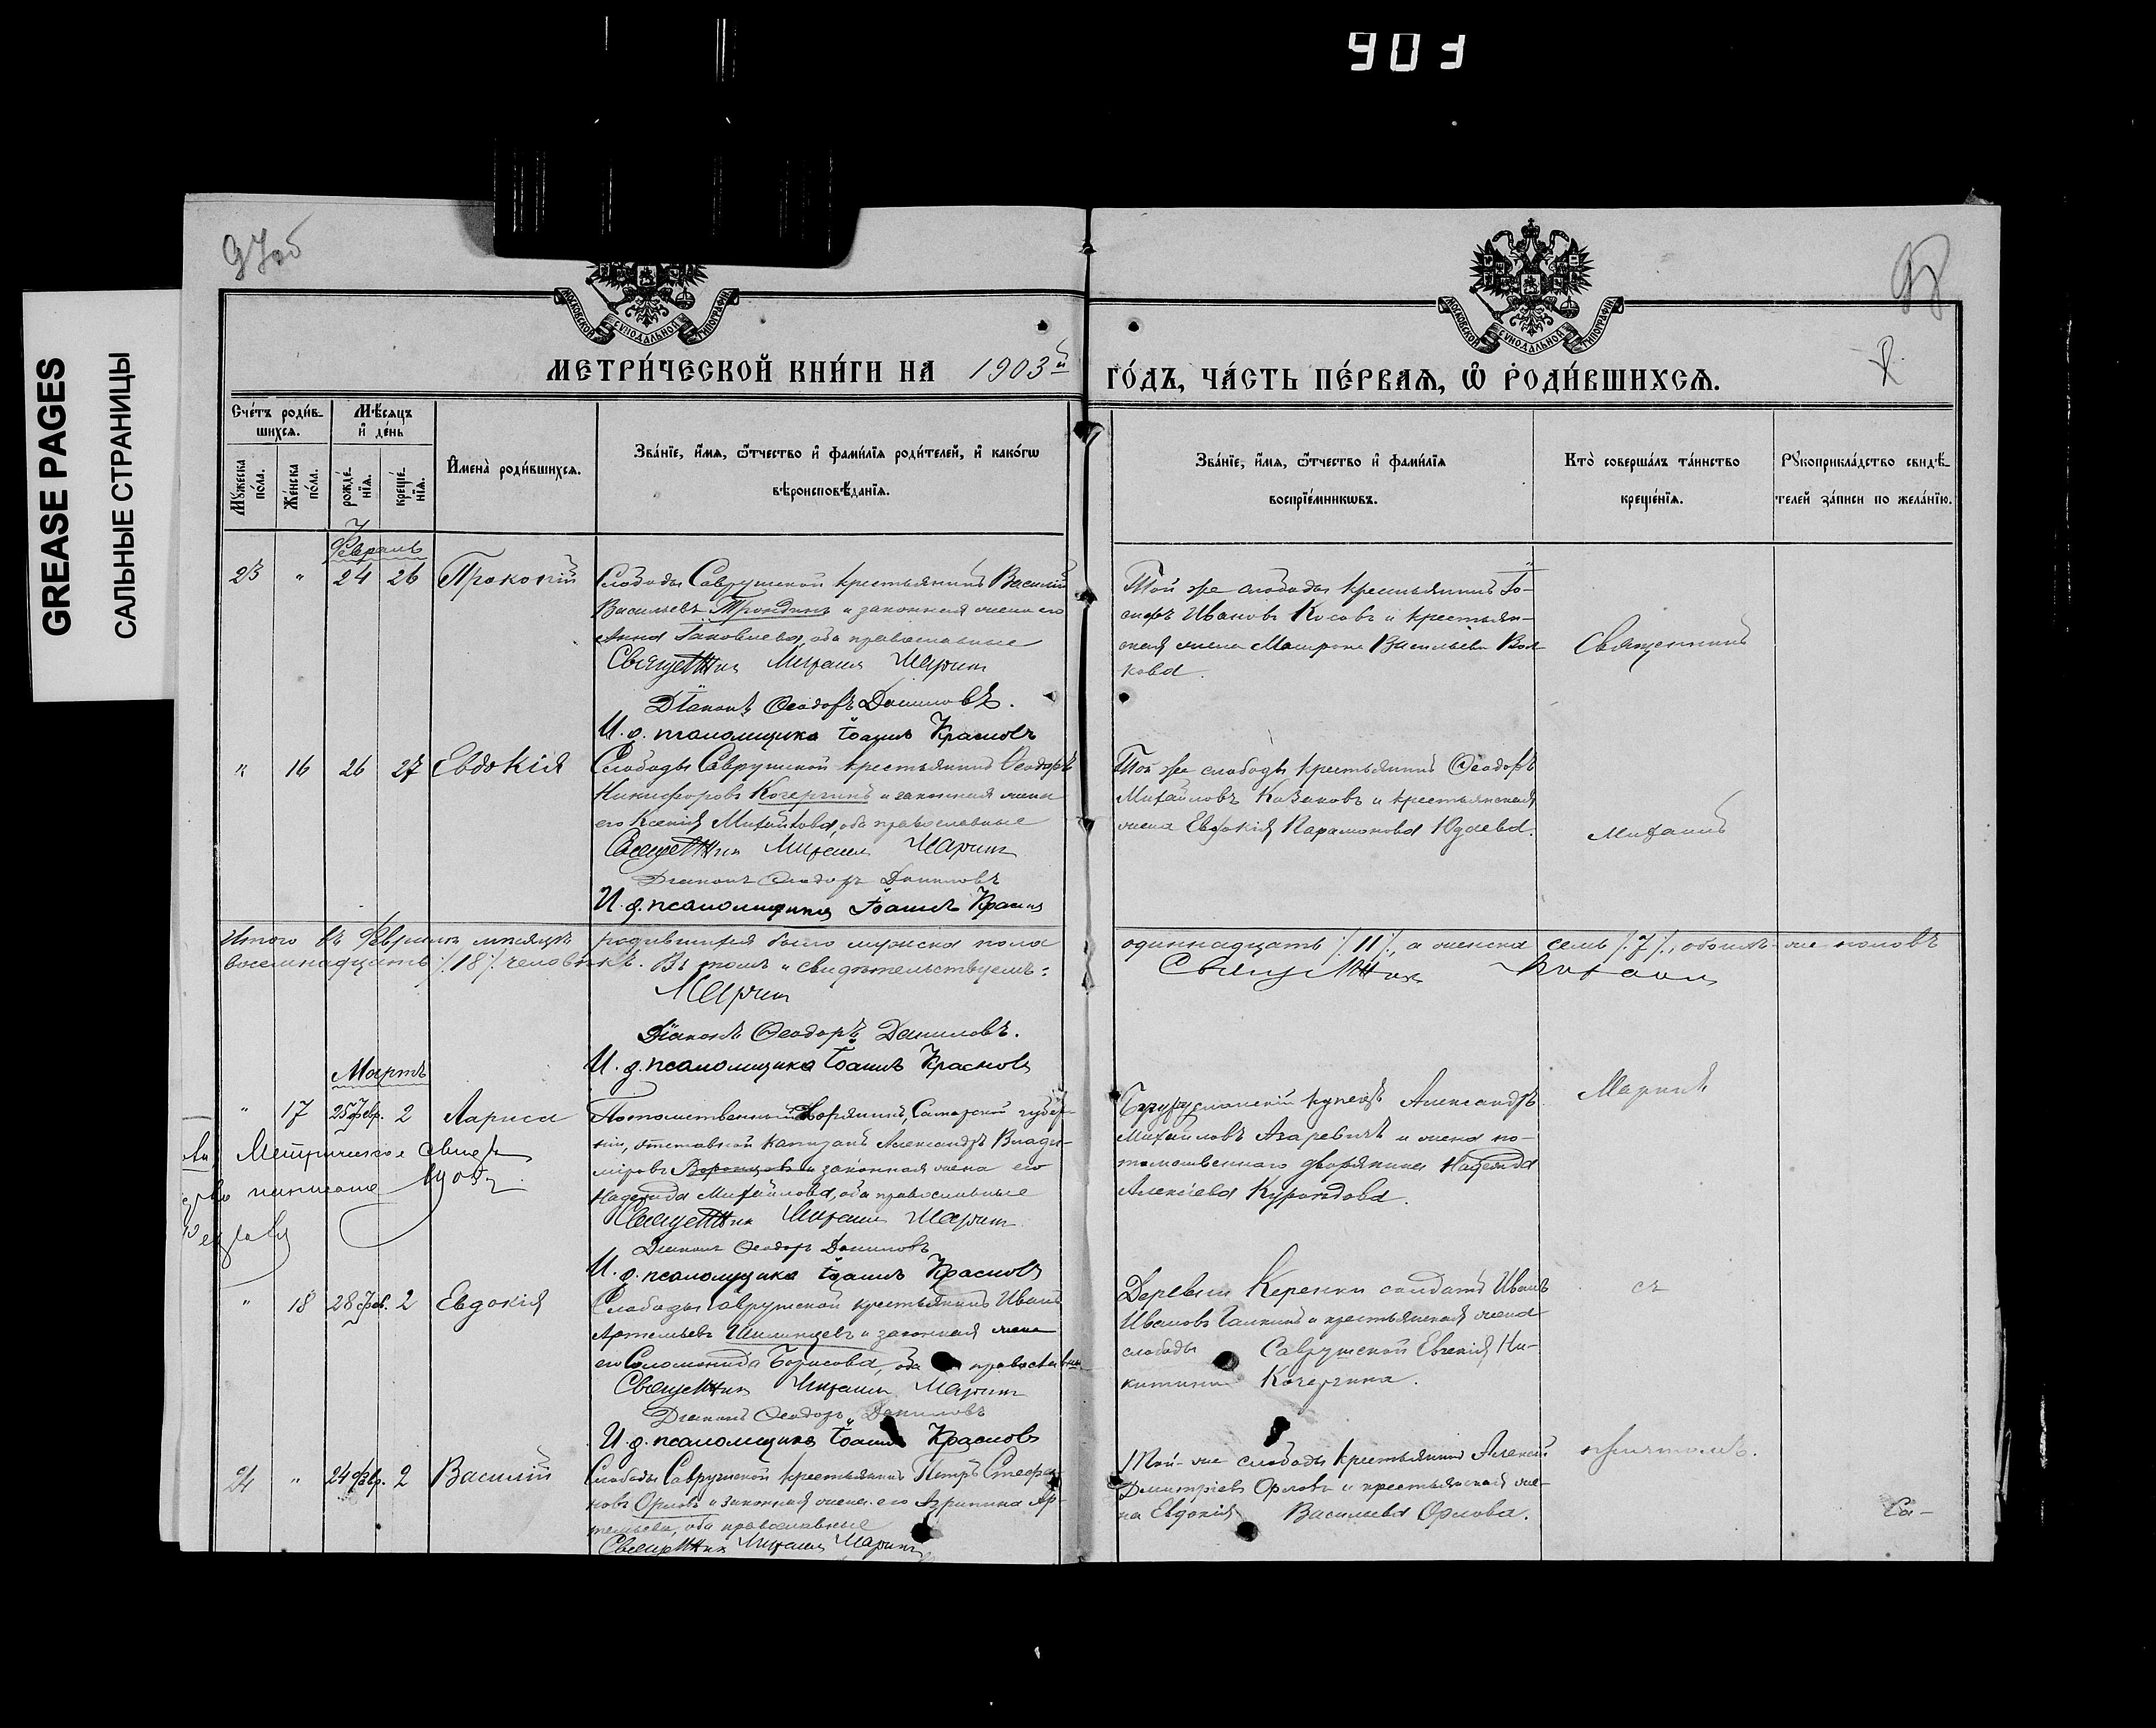 903
GREASE PAGES
САЛЬНЫЕ СТРАНИЦЫ
97об
98
МОСКОВСКОЙ СѴНОДАЛЬНОЙ ТИПОГРАФІИ
МОСКОВСКОЙ СѴНОДАЛЬНОЙ ТИПОГРАФІИ
МЕТРИ́ЧЕСКОЙ КНИ́ГИ НА 1903й
ГО́ДЪ, ЧА́СТЬ ПЕ́РВАЯ, Ѿ РОДИ́ВШИХСЯ.
Сче́тъ роди́в-
шихся.
Мѣ́сяцъ
и де́нь
Му́жеска по́ла.
Же́нска по́ла.
рожде́нїя.
креще́нїя.
Имена̀ роди́вшихся.
Зва́нїе, и́мя, ѻ́тчество и фами́лїя роди́телей, и како́гѡ
вѣроисповѣ́данїя.
Зва́нїе, и́мя, ѻ́тчество и фами́лїя
воспрїе́мникѡвъ.
Кто̀ соверша́лъ та́инство
креще́нїя.
Рукоприкла́дство свидѣ́-
телей за́писи по жела́нїю.
Февраль
23 " 24 26 Прокопій
Слободы Саврушской крестьянинъ Василій
Васильевъ Трондинъ и законная жена его
Анна Іаковлева, оба православные
Священник Михаил Марин
Діаконъ Ѳеодоръ Даниловъ.
И. д. псаломщика Іоаннъ Красновъ
Той же слободы крестьянинъ Іо-
сифъ Ивановъ Косовъ и крестьян-
ская жена Матрона Васильева Вол-
кова.
Священникъ
" 16 26 27 Евдокія
Слободы Саврушской крестьянинъ Ѳеодоръ
Никифоровъ Кочергинъ и законная жена
его Ксенія Михайлова, оба православные
Священник Михаил Марин
Діаконъ Ѳеодоръ Даниловъ
И. д. псаломщика Іоаннъ Красновъ
Той же слободы крестьянинъ Ѳеодоръ
Михайловъ Казаковъ и крестьянская
жена Евдокія Парамонова Юдаева.
Михаилъ
Итого въ Февралѣ мѣсяцѣ родившихся было мужска пола одиннадцать /11/, а женска семь /7/, обоихъ же половъ
восемнадцать /18/ человѣкъ. Въ томъ и свидѣтельствуемъ: Священник Михаил
Марин
Діаконъ Ѳеодоръ Даниловъ.
И. д. псаломщика Іоаннъ Красновъ
Мартъ
" 17 25 Февр. 2 Лариса
Потомственный дворянинъ, Самарской губер-
ніи, отставной капитанъ Александръ Влади-
міровъ Воронцовъ и законная жена его
Надежда Михайлова, оба православные
Священник Михаил Марин
Діаконъ Ѳеодоръ Даниловъ
И. д. псаломщика Іоаннъ Красновъ
Метрическое свидѣ
Бугурусланскій купецъ Александръ
Михайловъ Азаревичъ и жена по-
томственнаго дворянина Надежда
Алексіева Куроѣдова.
Маринъ
" 18 28 Фев. 2 Евдокія
Слободы Саврушской крестьянинъ Иванъ
Артемьевъ Шилинцевъ и законная жена
его Соломонида Борисова, оба православные
Священник Михаил Марин
Діаконъ Ѳеодоръ Даниловъ
И. д. псаломщика Іоаннъ Красновъ
Деревни Керенки солдатъ Иванъ
Ивановъ Галкинъ и крестьянская жена
слободы Саврушской Евгенія Ни-
китина Кочергина.
съ
24 " 24 Февр. 2 Василій
Слободы Саврушской крестьянинъ Петръ Стефа-
новъ Орловъ и законная жена его Агрипина Ар-
темьева, оба православные
Священник Михаил Марин
Той-же слободы крестьянинъ Алексій
Димитріевъ Орловъ и крестьянская же-
на Евдокія Васильева Орлова.
причтомъ.